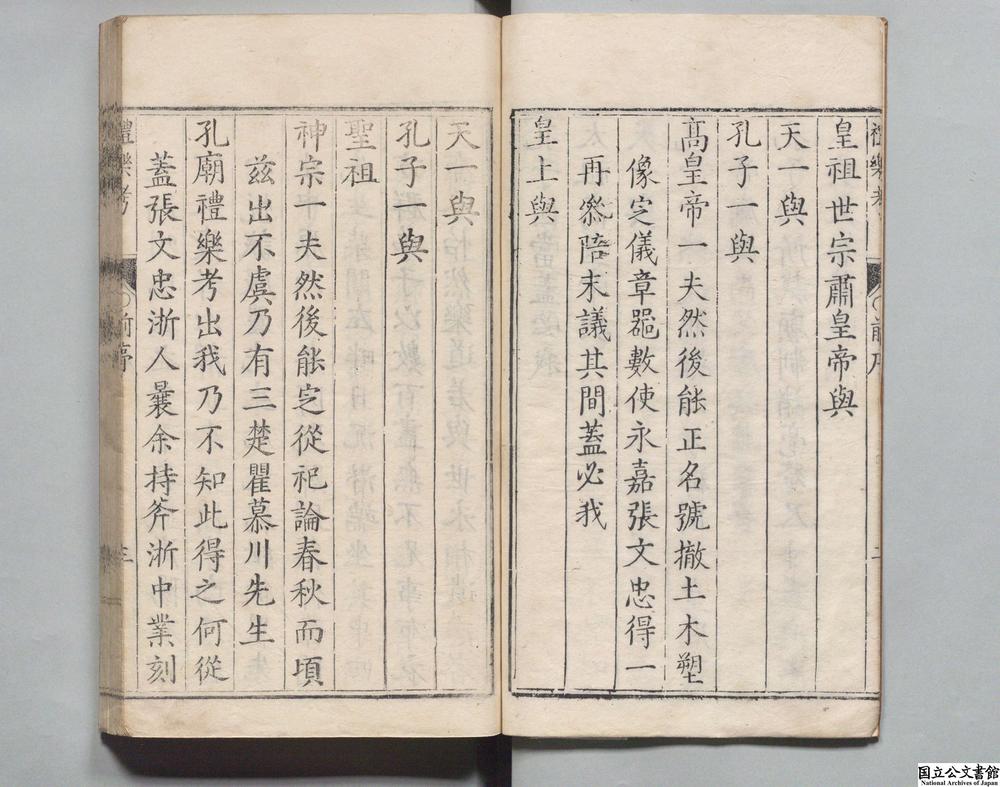 皇祖世宗肅皇帝與
天一與
孔子一與
高皇帝一夫然後能正名號撤土木塑
像定儀章噐數使永嘉張文忠得一
再叅陪末議其間蓋必我
皇上與
天一與
孔子一與
聖祖
神宗一夫然後能定從祀論春秋而頃
兹出不虞乃有三楚瞿慕川先生
孔廟禮樂考出我乃不知此得之何從
蓋張文忠浙人曩余持斧浙中業刻
禮樂考
前序
三
国立公文書館
National Archives of Japan